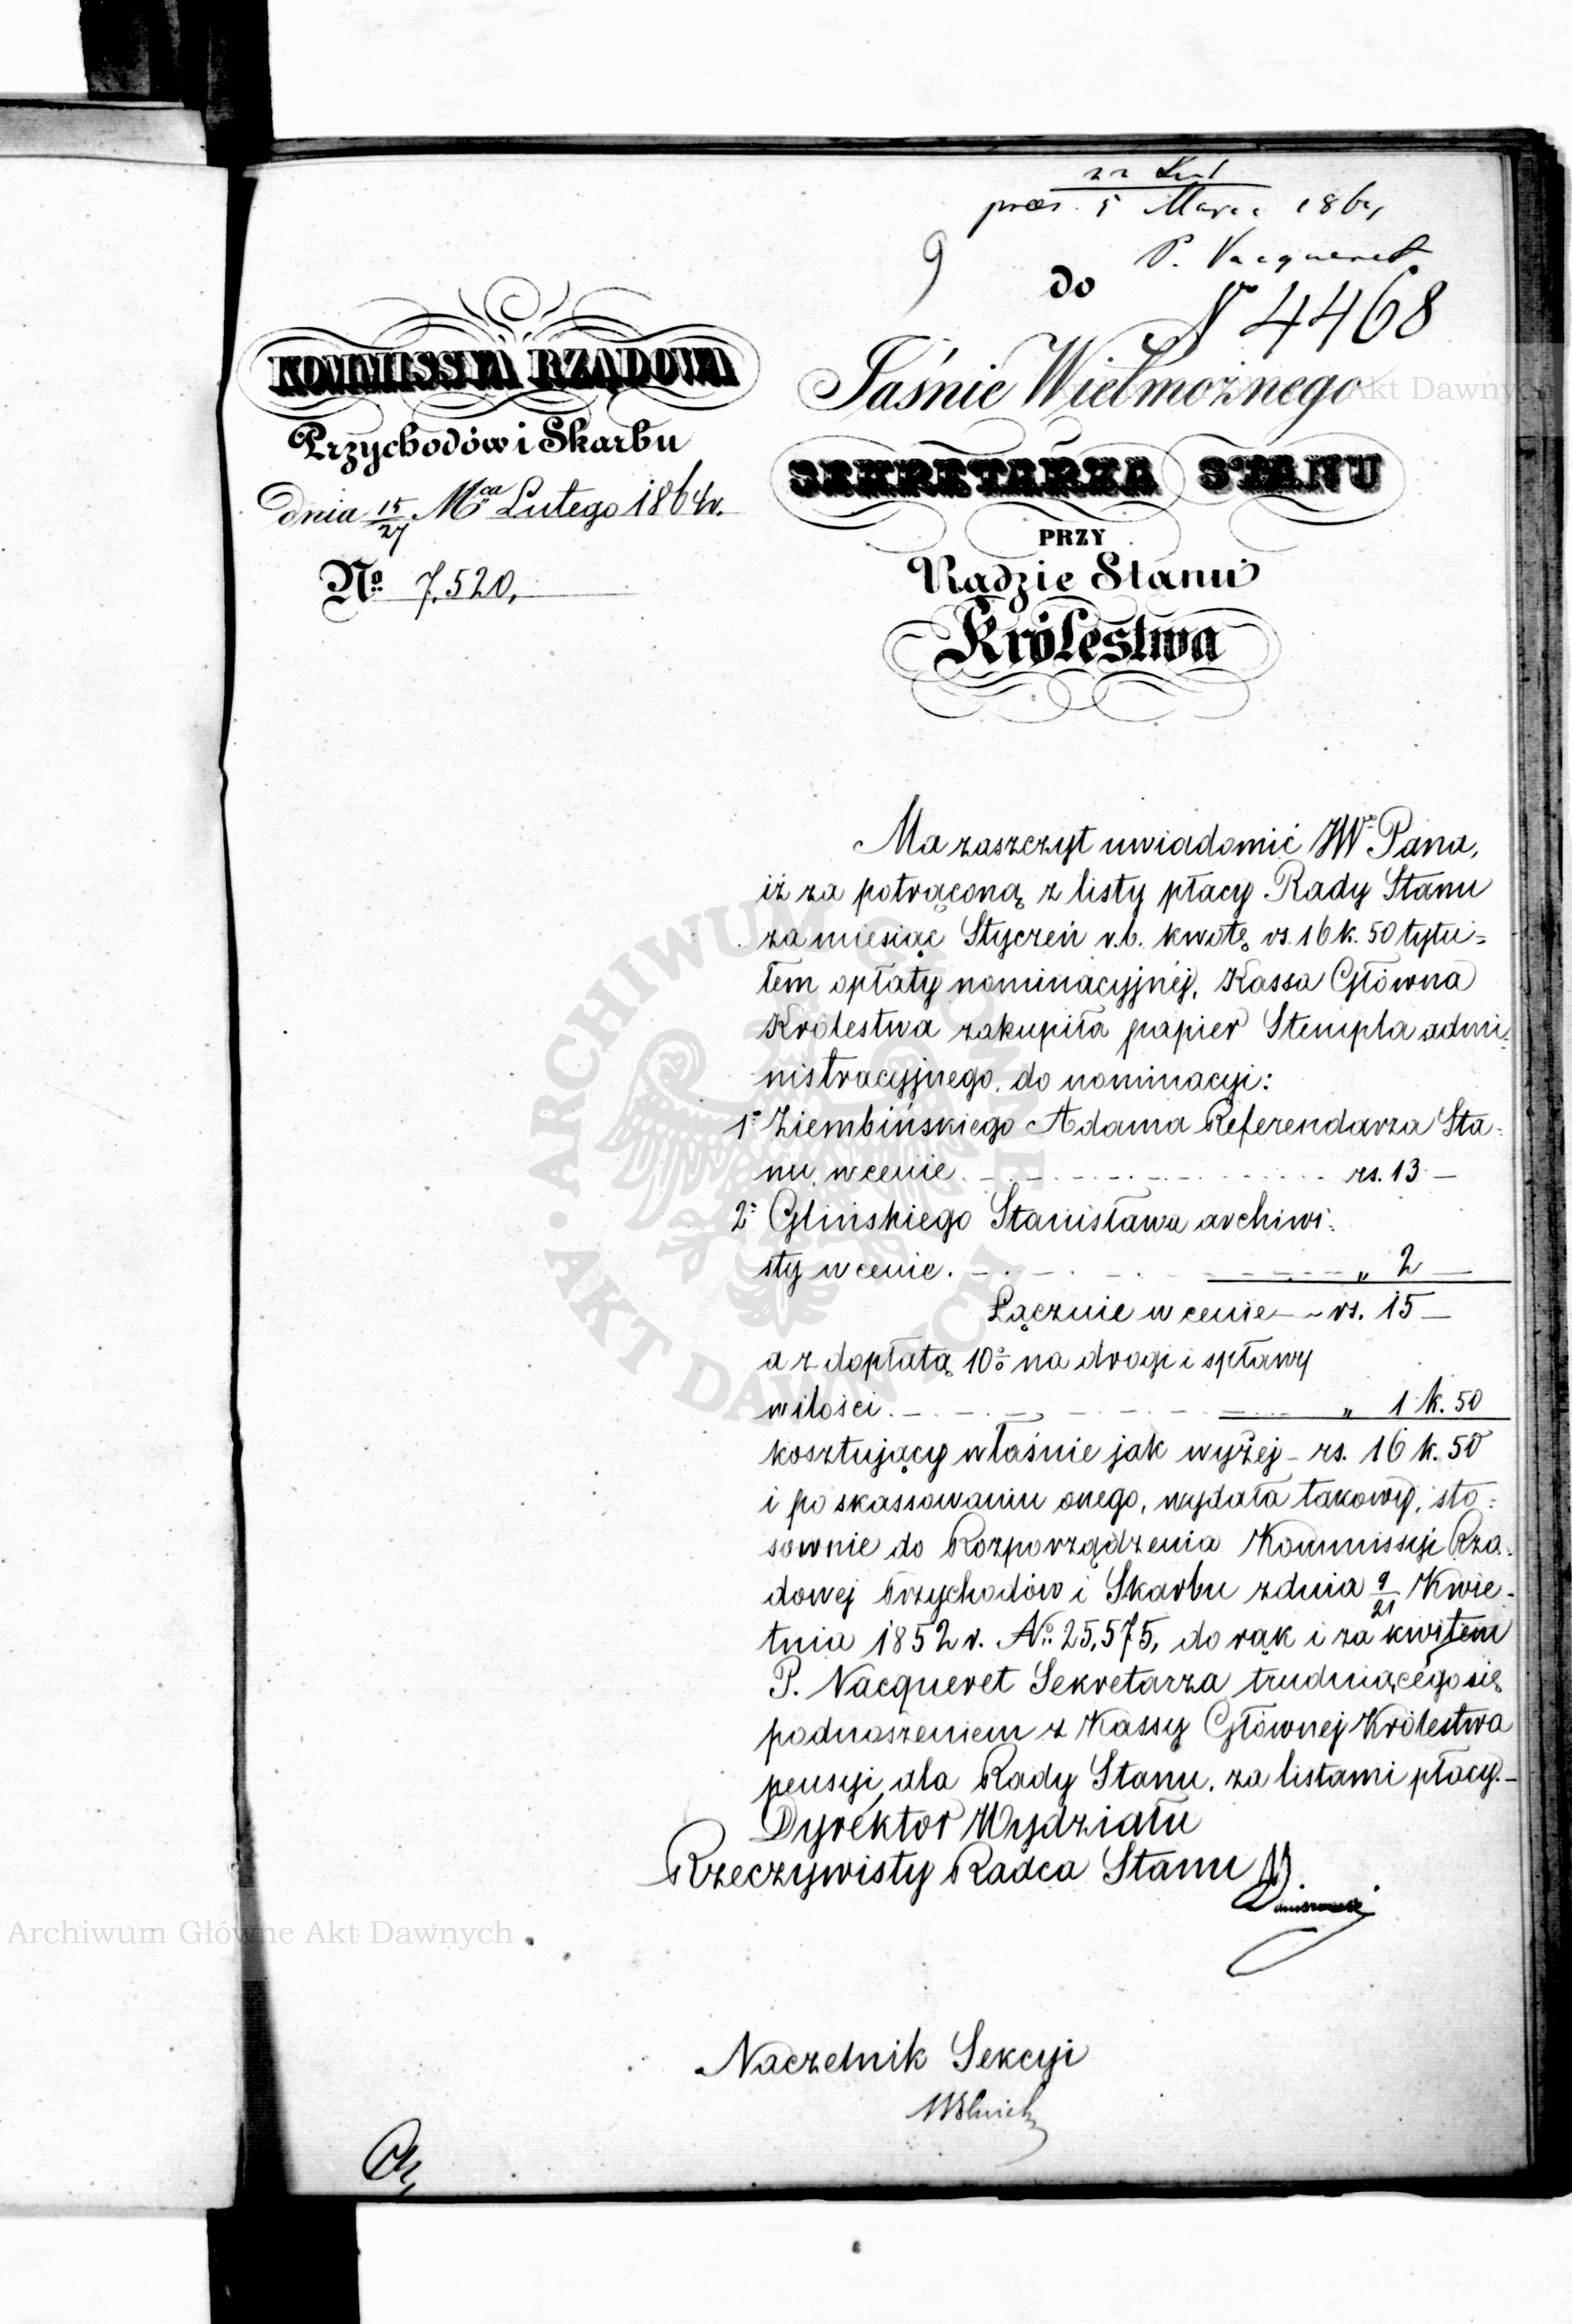 22 Lut
præs. 5 Marca 1864
P. Vacqueret
9
do
N 4468
KOMMISSYA RZĄDOWA
Przychodów i Skarbu
dnia 15/27 Mca Lutego 1864 r.
No 7,520,
Jaśnie Wielmożnego
SEKRETARZA STANU
PRZY
Radzie Stanu
Królestwa
Ma zaszczyt uwiadomić JW Pana,
iż za potrąconą z listy płacy Rady Stanu
za miesiąc Styczeń r.b. kwotę rs. 16 k. 50 tytu=
łem opłaty nominacyjnéj, Kassa Główna
Królestwa zakupiła papier Stempla admi=
nistracyjnego, do nominacyi:
1o Ziembińskiego Adama Referendarza Sta=
nu, w cenie rs. 13 —
2o Glińskiego Stanisława archiwi=
sty w cenie. „ 2 —
Łącznie w cenie — rs. 15 —
a z dopłatą 10% na drogi i spławy
w ilości „ 1 k. 50
kosztujący właśnie jak wyżej — rs. 16 k. 50
i po skassowaniu onego, wydała takowy, sto=
sownie do Rozporządzenia Kommissyi Rzą=
dowej Przychodów i Skarbu z dnia 9/21 Kwie=
tnia 1852 r. No 25,575, do rąk i za kwitem
P. Vacqueret Sekretarza trudniącego się
podnoszeniem z Kassy Głównej Królestwa
pensyi, dla Rady Stanu, za listami płacy. —
Dyrektor Wydziału
Rzeczywisty Radca Stanu
Naczelnik Sekcyi
Archiwum Główne Akt Dawnych
ARCHIWUM GŁÓWNE
AKT DAWNYCH